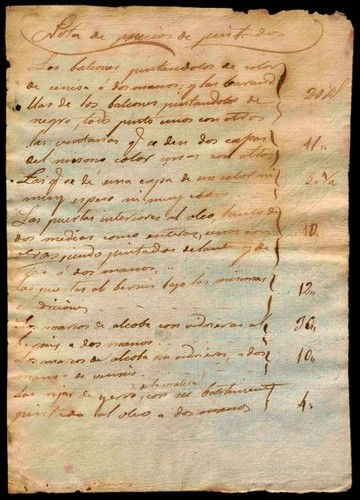 Nota de precios de pintados
Los balcones pintandolos de color
de ceniza á dos manos; y las barand
illas de los balcones pintandolas de
negro, todo junto unos con otros 20 rl
las ventanas q se den dos capas
del mismo color unas con otras 11,,
Las q se dé una capa de un color ni
muy espeso ni muy claro
Las puertas interiores al oleo, tanto de
dos medias como enteras, unas con
otras siendo pintadas delante y de
tras á dos manos 10,,
las puertas al berniz bajo las mismas
condiciones 12,,
los marcos de alcoba con vidrieras al
berniz a dos manos 30,,
los marcos de alcoba sin vidrieras, a dos
manos de berniz 10,,
Las rejas de yerro, con su bastiment
(de la madera)
pintado al oleo a dos manos 4,,